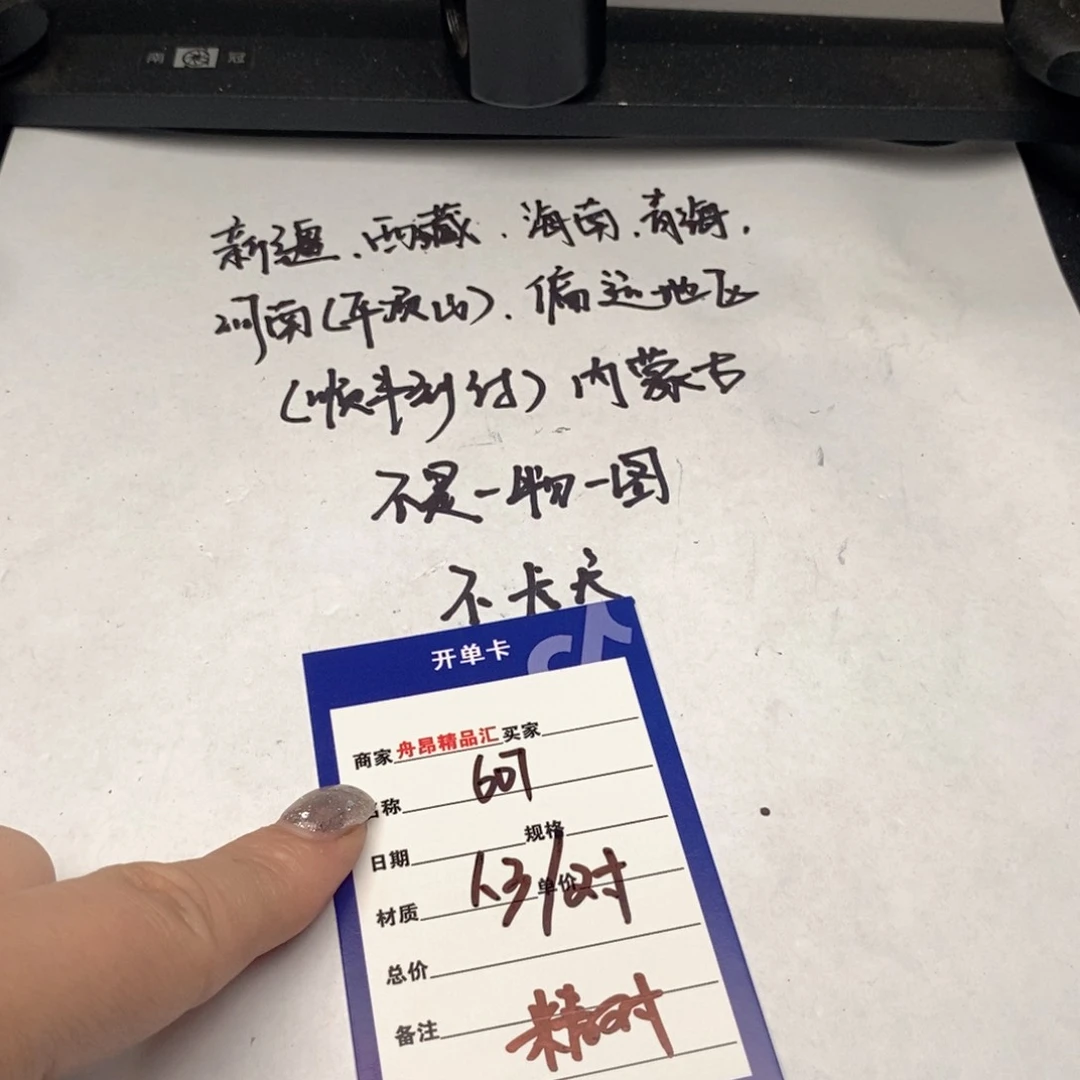 南 冠
新疆、西藏、海南、青海、
河南(平顶山)、偏远地区
(顺丰到付)内蒙古
不是一物一图
不卡
开单卡
商家 舟昂精品汇 买家
607
名称
日期 规格
材质 单价
/对
总价
备注 精对